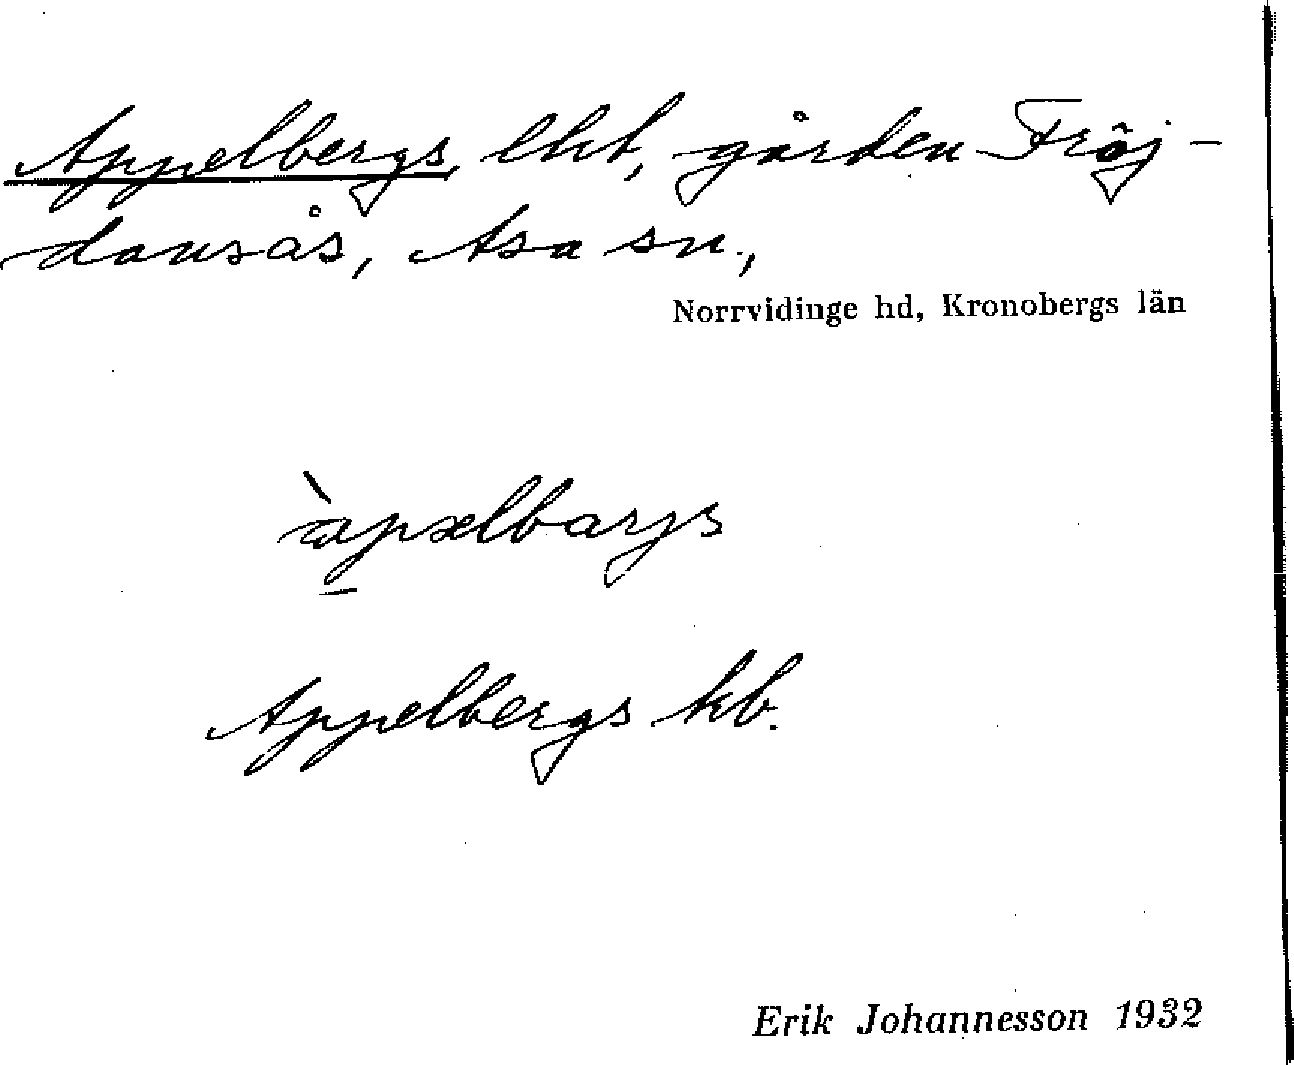 Appelbergs, lht, gården Fröj-
dansås, Asa sn.,
Norrvidinge hd, Kronobergs län
àpælbarjs
Appelbergs kb.
Erik Johannesson 1932